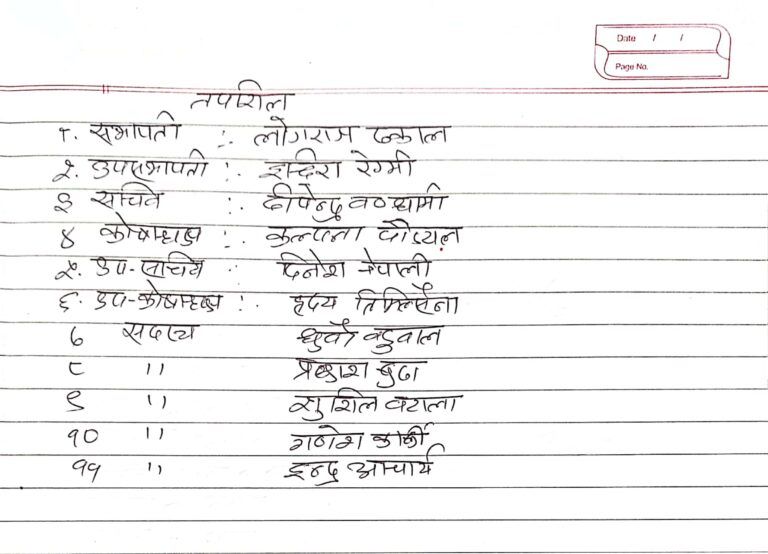 Date / /
Page No.
तपशिल
१. सभापती :. लोगराज ढकाल
२. उपसभापती :. इन्दिरा रेग्मी
३ सचिव :. दीपेन्द्र वण
४ कोषाध्यक्ष :. कल्पना पौड्यल
५. उप-सचिव .. दिनेश नेपाली
६. उप-कोषाध्यक्ष :. हृदय तिमिल्सैना
७ सदस्य धुर्वो वडुवाल
८ '' प्रकाश बुढा
९ '' सुशिल वराला
१० '' गणेश कार्की
११ '' इन्द्र आचार्य